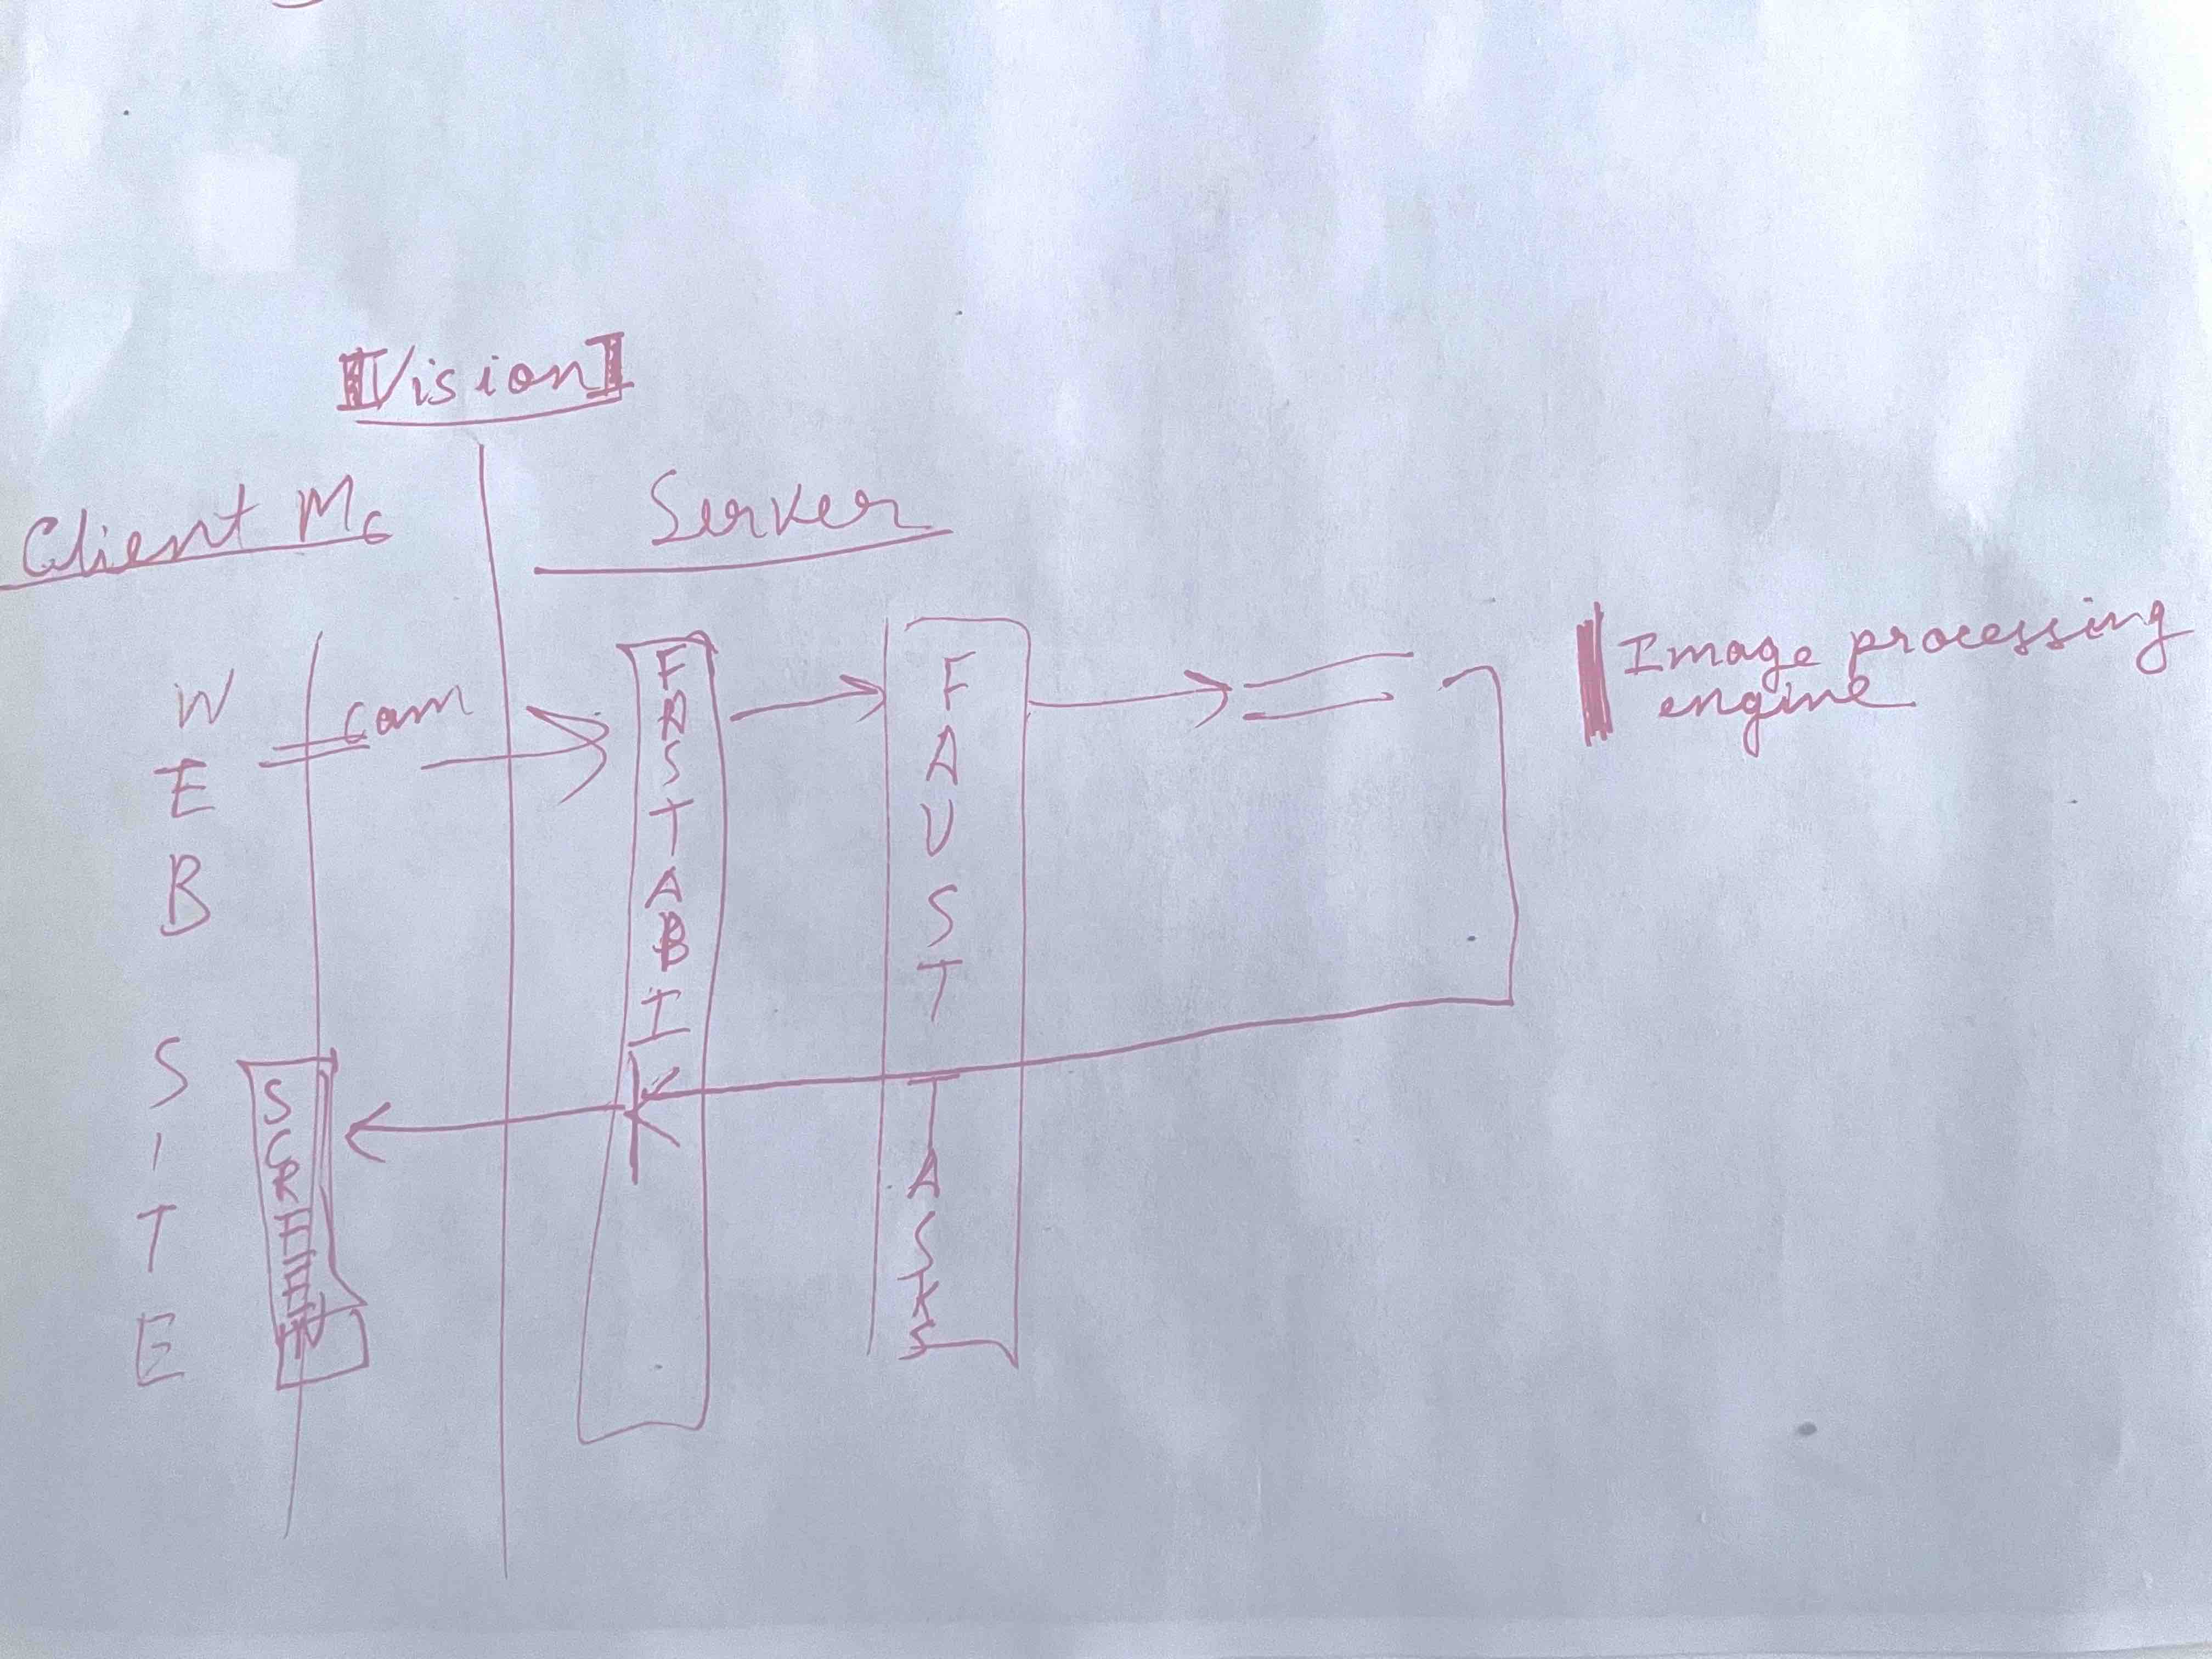 Vision
Client Mc
Server
WEB SITE
cam
FASTABI
FAUST TASKS
Image processing
engine
SCREEN